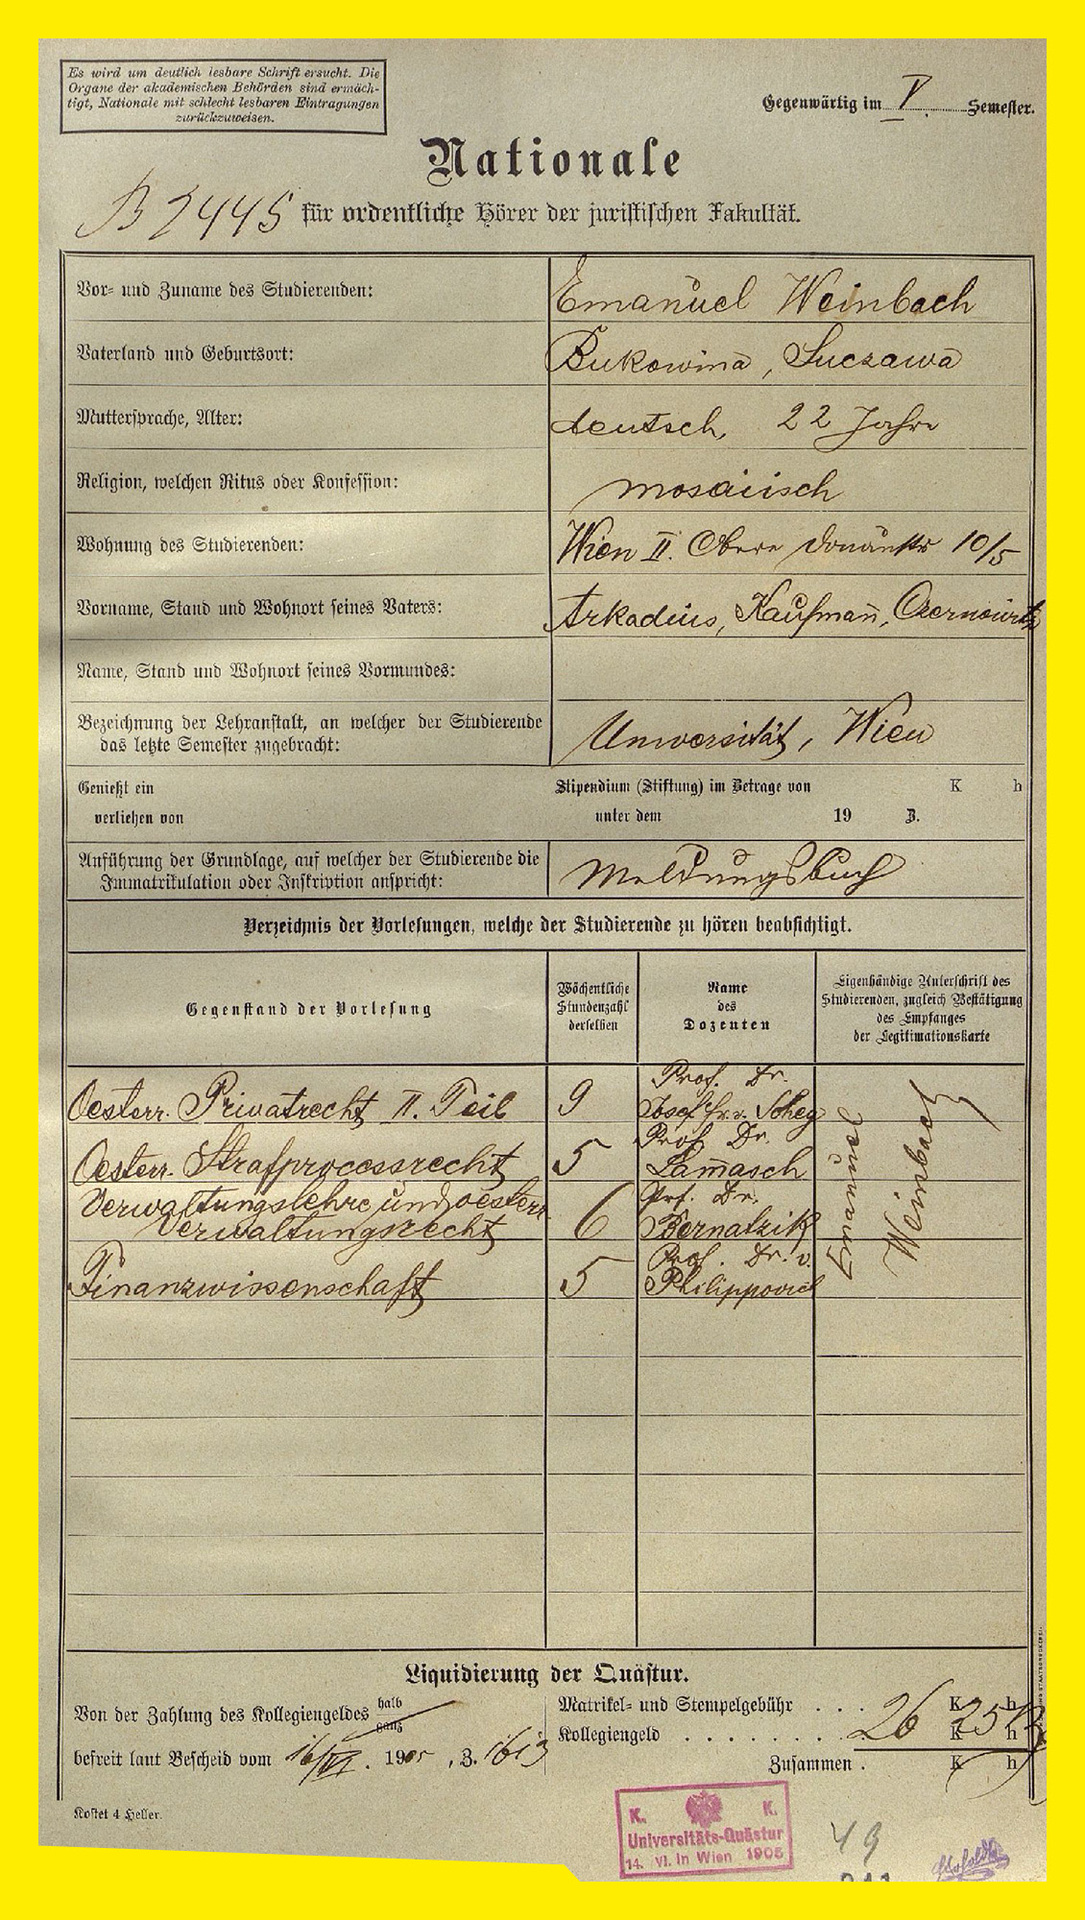 Es wird um deutlich lesbare Schrift ersucht. Die
Organe der akademischen Behörden sind ermäch-
tigt, Nationale mit schlecht lesbaren Eintragungen
zurückzuweisen.
Gegenwärtig im V. Semester.
Nationale
B 2445 für ordentliche Hörer der juristischen Fakultät.
Vor- und Zuname des Studierenden: Emanuel Weinbach
Vaterland und Geburtsort: Bukowina, Suczawa
Muttersprache, Alter: deutsch, 22 Jahre
Religion, welchen Ritus oder Konfession: mosaiisch
Wohnung des Studierenden: Wien II. Obere Donaustr 10/5
Vorname, Stand und Wohnort seines Vaters: Arkadius, Kaufmann, Czernowitz
Name, Stand und Wohnort seines Vormundes:
Bezeichnung der Lehranstalt, an welcher der Studierende
das letzte Semester zugebracht: Universität, Wien
Genießt ein Stipendium (Stiftung) im Betrage von K h
verliehen von unter dem 19 Z.
Anführung der Grundlage, auf welcher der Studierende die
Immatrikulation oder Inskription anspricht: Meldungsbuch
Verzeichnis der Vorlesungen, welche der Studierende zu hören beabsichtigt.
Gegenstand der Vorlesung
Wöchentliche
Stundenzahl
derselben
Name
des
Dozenten
Eigenhändige Unterschrift des
Studierenden, zugleich Bestätigung
des Empfanges
der Legitimationskarte
Prof. Dr.
Oesterr. Privatrecht II. Teil 9 Josef Fr. v. Scheg
Prof. Dr.
Oesterr. Strafprocessrecht 5 Lammasch
Verwaltungslehre und oesterr. Prf. Dr.
Verwaltungsrecht 6 Bernatzik
Prof. Dr. v.
Finanzwissenschaft 5 Philippovich
Emanuel
Weinbach
Liquidierung der Quästur.
Von der Zahlung des Kollegiengeldes halb
ganz
befreit laut Bescheid vom 16/VI. 1905, Z. 1613
Matrikel- und Stempelgebühr . . . K h
Kollegiengeld . . . . . . . . 26 K 25 h
Zusammen . K h
Kostet 4 Heller.
K. K.
Universitäts-Quästur
14. VI. in Wien 1905
49